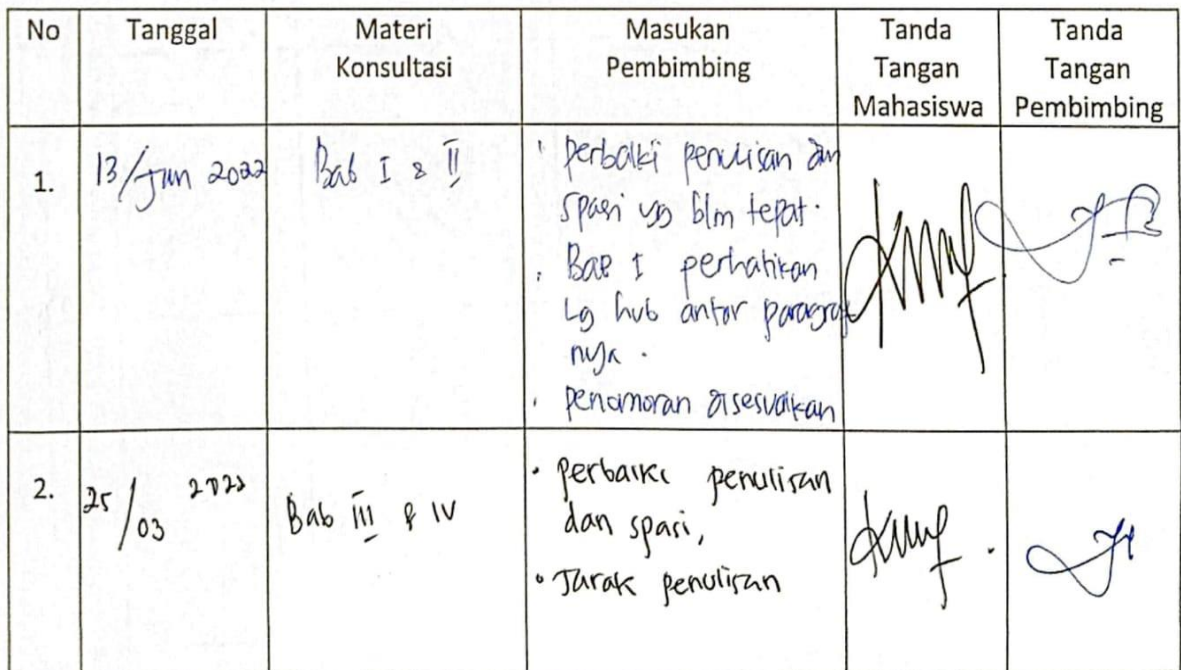 No Tanggal Materi Konsultasi Masukan Pembimbing Tanda Tangan Mahasiswa Tanda Tangan Pembimbing
1. 13/Jun 2022 Bab I & II
• perbaiki penulisan dan
spasi yg blm tepat.
• Bab I perhatikan
Lg hub antar paragraf
nya.
• penomoran disesuaikan
2. 25/03 2022 Bab III & IV
• perbaiki penulisan
dan spasi,
• Jarak penulisan